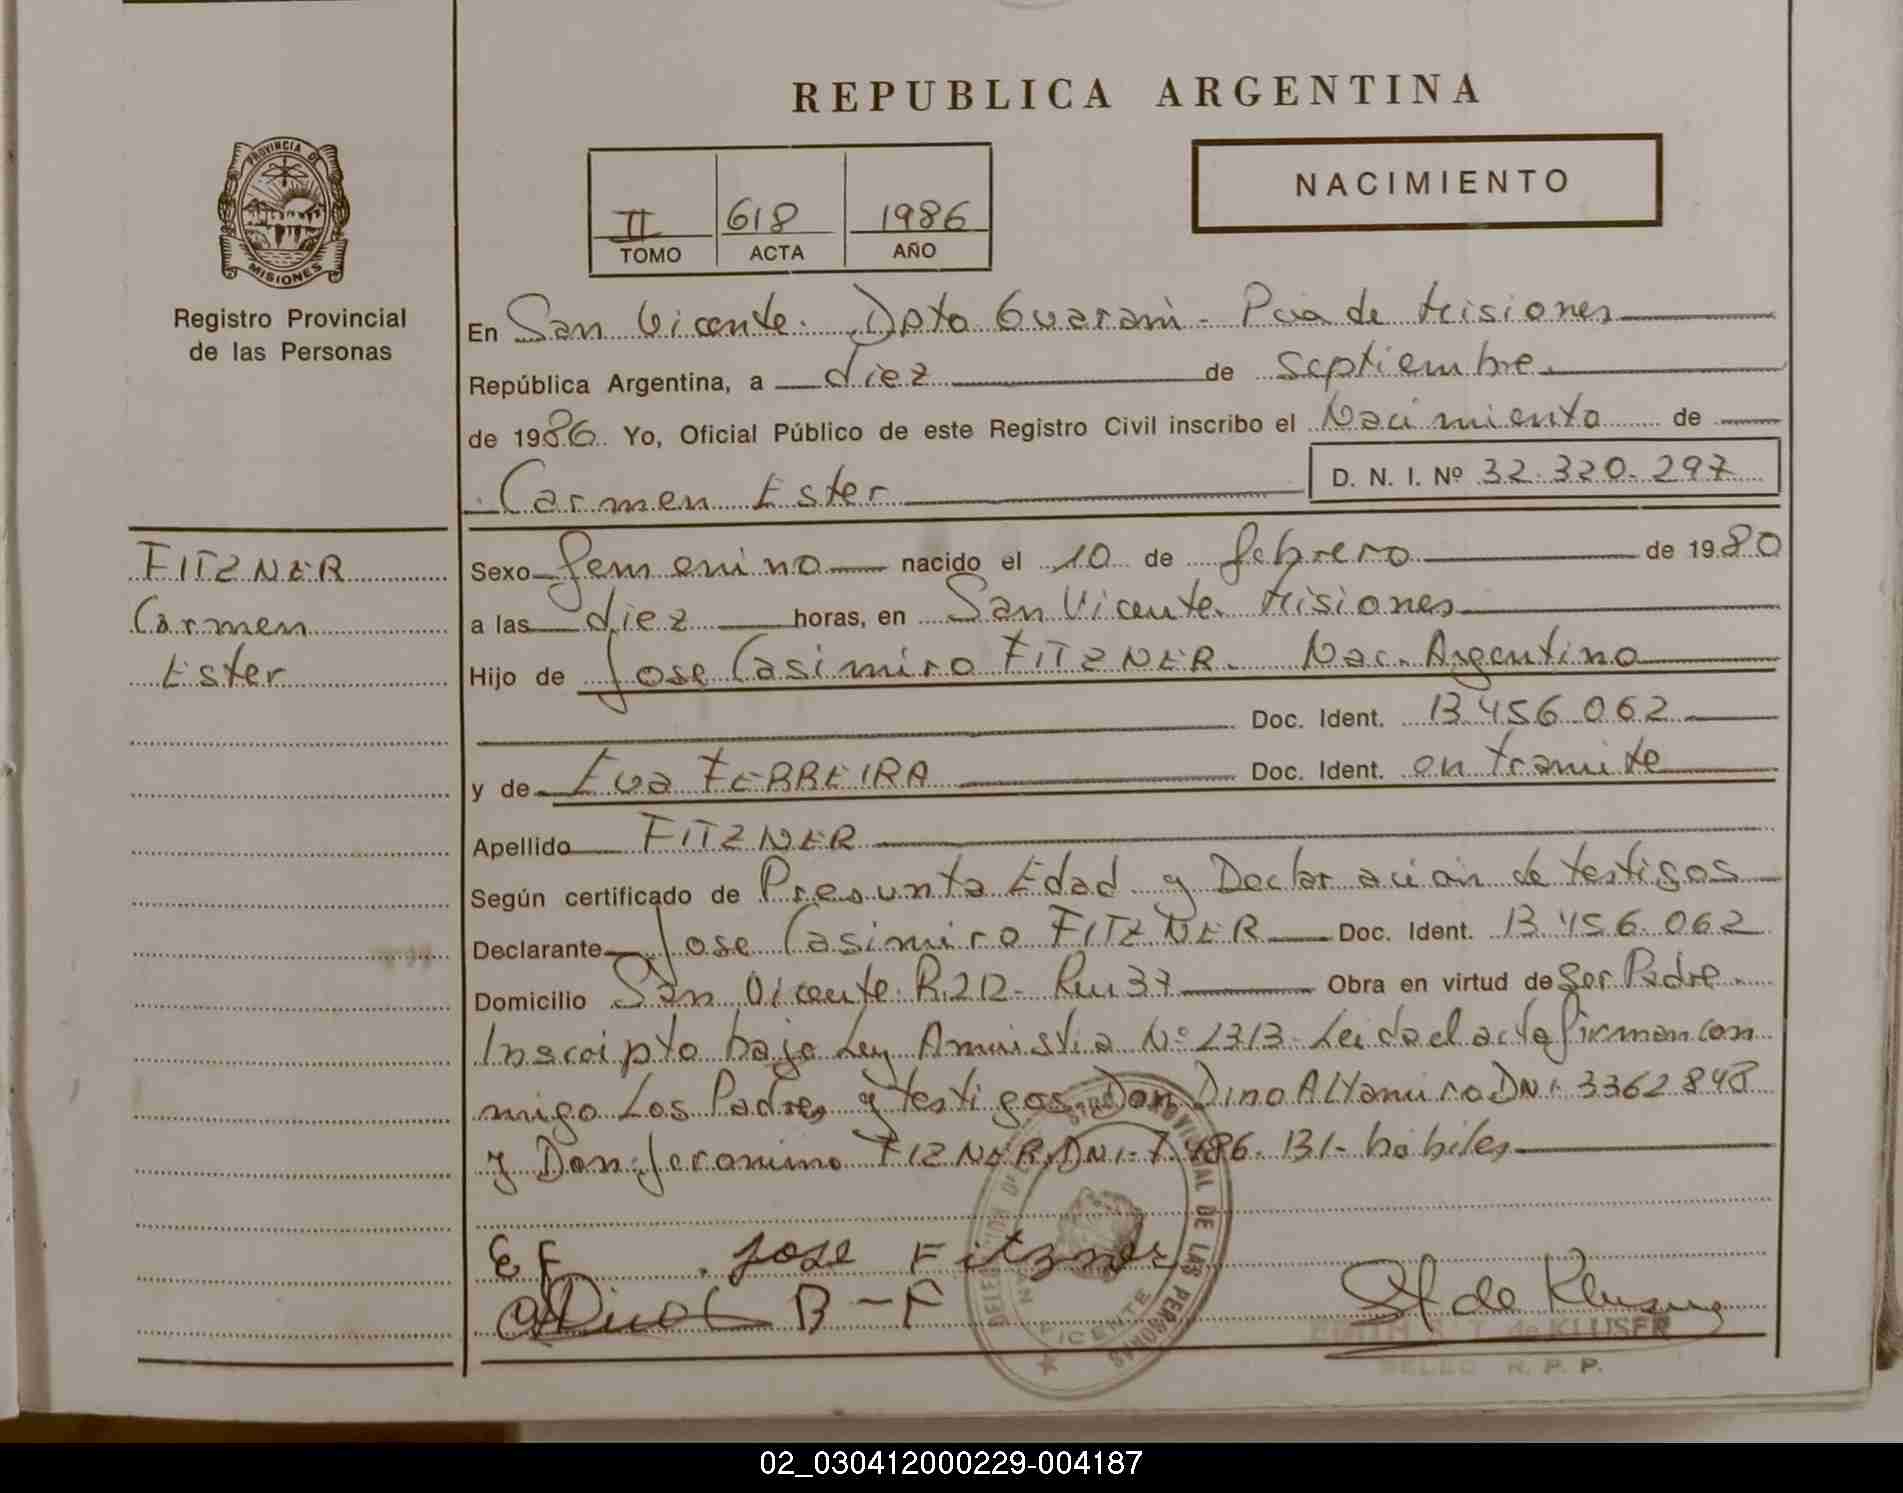 REPUBLICA ARGENTINA
PROVINCIA DE
MISIONES
Registro Provincial
de las Personas
II 618 1986
TOMO ACTA AÑO
NACIMIENTO
En San Vicente. Dpto Guarani - Pcia de Misiones
República Argentina, a diez de septiembre
de 1986. Yo, Oficial Público de este Registro Civil inscribo el Nacimiento de
Carmen Ester D. N. I. Nº 32.320.297
FITZNER
Carmen
Ester
Sexo femenino nacido el 10 de febrero de 1980
a las diez horas, en San Vicente. Misiones
Hijo de Jose Casimiro FITZNER. Nac. Argentino
Doc. Ident. 13.456.062
y de Eva FERREIRA Doc. Ident. en tramite
Apellido FITZNER
Según certificado de Presunta Edad y Declaración de testigos
Declarante Jose Casimiro FITZNER Doc. Ident. 13.456.062
Domicilio San Vicente. R.212- Km 37 Obra en virtud de Ser Padre
Inscripto bajo Ley Amnistia Nº 2313- Leida el acta firman con
migo Los Padres y testigos Don Dino Altamiro DNI. 3362848
y Don Jeronimo FIZNER DNI- 7.486.131- habiles
E F . Jose Fitzner
B - F
EDITH S. T. de KLUSER
R. P. P.
VICENTE
02_030412000229-004187